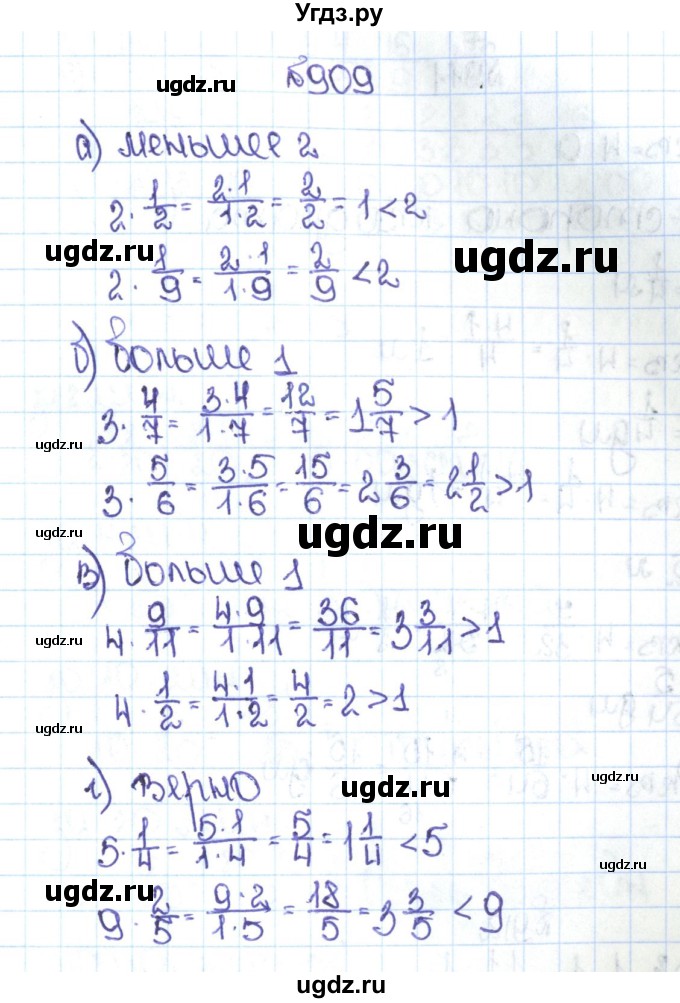 Угдз.ру
ugdz.ru №909
а) меньшее 2
2 · 1/2 = 2·1/1·2 = 2/2 = 1 < 2
ugdz.ru ugdz.ru
2 · 1/9 = 2·1/1·9 = 2/9 < 2
б) больше 1
3 · 4/7 = 3·4/1·7 = 12/7 = 1 5/7 > 1
ugdz.ru
3 · 5/6 = 3·5/1·6 = 15/6 = 2 3/6 = 2 1/2 > 1
ugdz.ru ugdz.ru
в) больше 1
4 · 9/11 = 4·9/1·11 = 36/11 = 3 3/11 > 1
ugdz.ru
4 · 1/2 = 4·1/1·2 = 4/2 = 2 > 1
ugdz.ru
г) верно
ugdz.ru ugdz.ru
5 · 1/4 = 5·1/1·4 = 5/4 = 1 1/4 < 5
ugdz.ru ugdz.ru
9 · 2/5 = 9·2/1·5 = 18/5 = 3 3/5 < 9
ugdz.ru